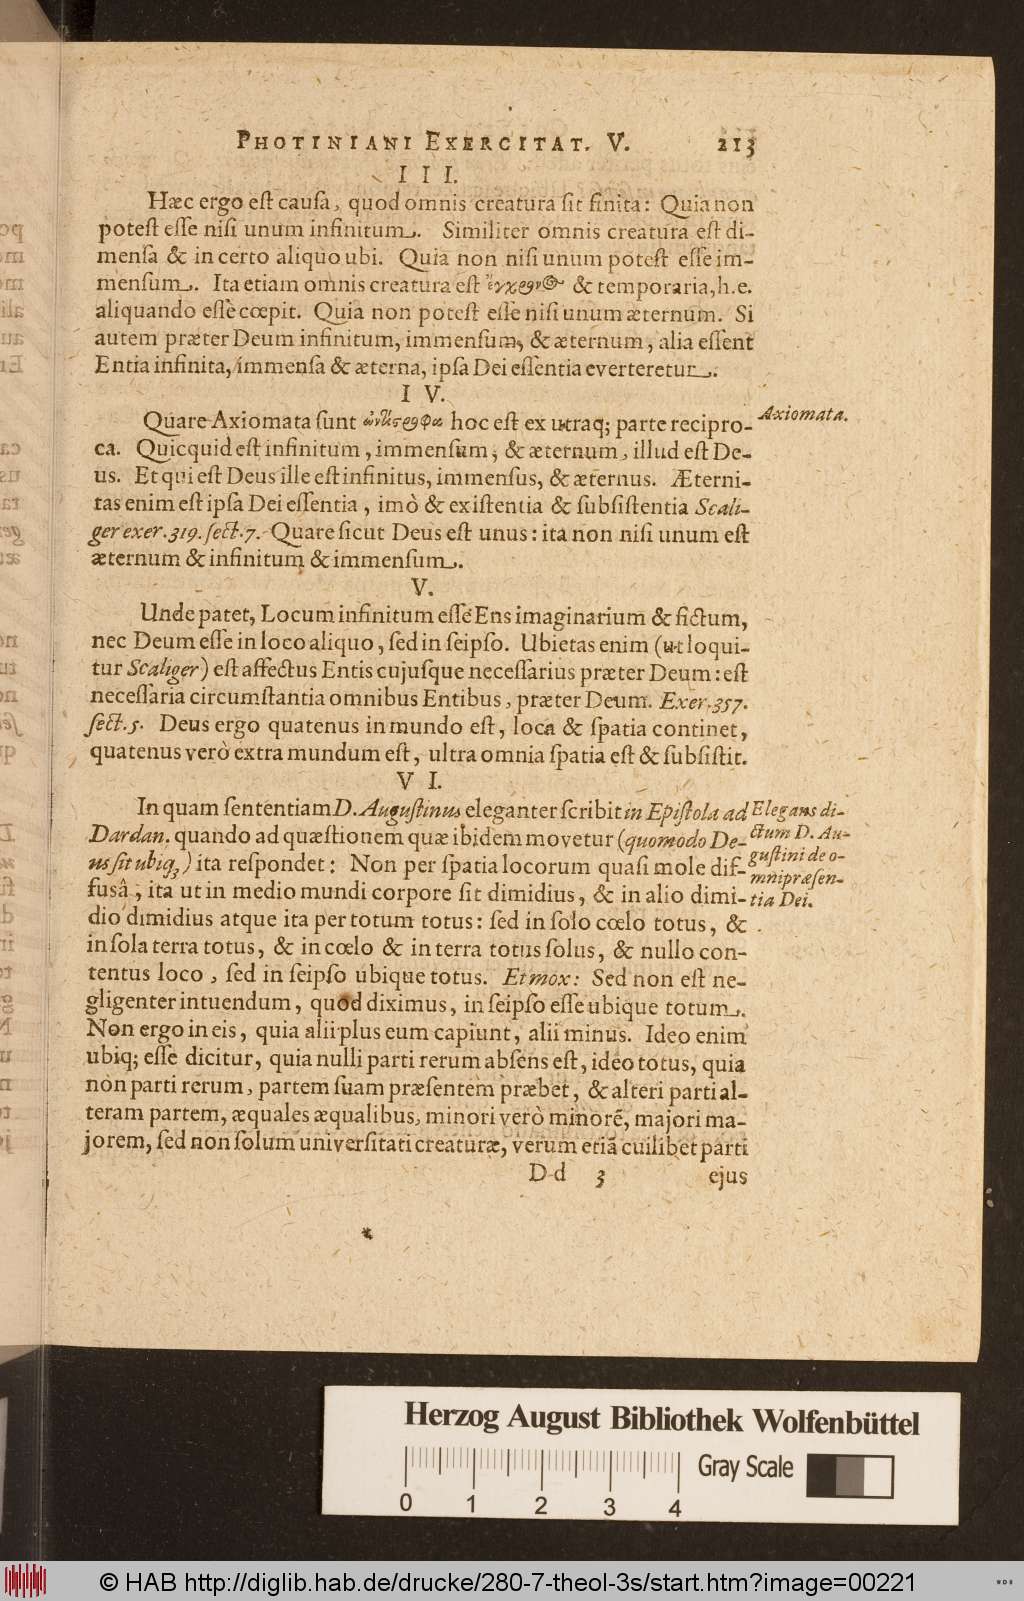 PHOTINIANI EXERCITAT. V. 213
III.
Hæc ergo eſt cauſa, quod omnis creatura ſit finita: Quia non
poteſt eſſe niſi unum infinitum. Similiter omnis creatura eſt di-
menſa & in certo aliquo ubi. Quia non niſi unum poteſt eſſe im-
menſum. Ita etiam omnis creatura eſt & temporaria, h.e.
aliquando eſſe cœpit. Quia non poteſt eſſe niſi unum æternum. Si
autem præter Deum infinitum, immenſum, & æternum, alia eſſent
Entia infinita, immenſa & æterna, ipſa Dei eſſentia everteretur.
IV.
Quare Axiomata ſunt hoc eſt ex utraq; parte recipro-
Axiomata.
ca. Quicquid eſt infinitum, immenſum, & æternum, illud eſt De-
us. Et qui eſt Deus ille eſt infinitus, immenſus, & æternus. Æterni-
tas enim eſt ipſa Dei eſſentia, imò & exiſtentia & ſubſiſtentia Scali-
ger exer. 319. ſect. 7. Quare ſicut Deus eſt unus: ita non niſi unum eſt
æternum & infinitum & immenſum.
V.
Unde patet, Locum infinitum eſſe Ens imaginarium & fictum,
nec Deum eſſe in loco aliquo, ſed in ſeipſo. Ubietas enim (ut loqui-
tur Scaliger) eſt affectus Entis cujuſque neceſſarius præter Deum: eſt
neceſſaria circumſtantia omnibus Entibus, præter Deum. Exer. 357.
ſect. 5. Deus ergo quatenus in mundo eſt, loca & ſpatia continet,
quatenus verò extra mundum eſt, ultra omnia ſpatia eſt & ſubſiſtit.
VI.
In quam ſententiam D. Auguſtinus eleganter ſcribit in Epiſtola ad
Dardan. quando ad quæſtionem quæ ibidem movetur (quomodo De-
us ſit ubiq;) ita reſpondet: Non per ſpatia locorum quaſi mole dif-
fusâ, ita ut in medio mundi corpore ſit dimidius, & in alio dimi-
Elegans di-
ctum D. Au-
guſtini de o-
mnipræſen-
tia Dei.
dio dimidius atque ita per totum totus: ſed in ſolo cœlo totus, &
in ſola terra totus, & in cœlo & in terra totus ſolus, & nullo con-
tentus loco, ſed in ſeipſo ubique totus. Et mox: Sed non eſt ne-
gligenter intuendum, quod diximus, in ſeipſo eſſe ubique totum.
Non ergo in eis, quia alii plus eum capiunt, alii minus. Ideo enim
ubiq; eſſe dicitur, quia nulli parti rerum abſens eſt, ideo totus, quia
non parti rerum, partem ſuam præſentem præbet, & alteri parti al-
teram partem, æquales æqualibus, minori verò minorẽ, majori ma-
jorem, ſed non ſolum univerſitati creaturæ, verum etiã cuilibet parti
Dd 3 ejus
Herzog August Bibliothek Wolfenbüttel
Gray Scale
0 1 2 3 4
© HAB http://diglib.hab.de/drucke/280-7-theol-3s/start.htm?image=00221